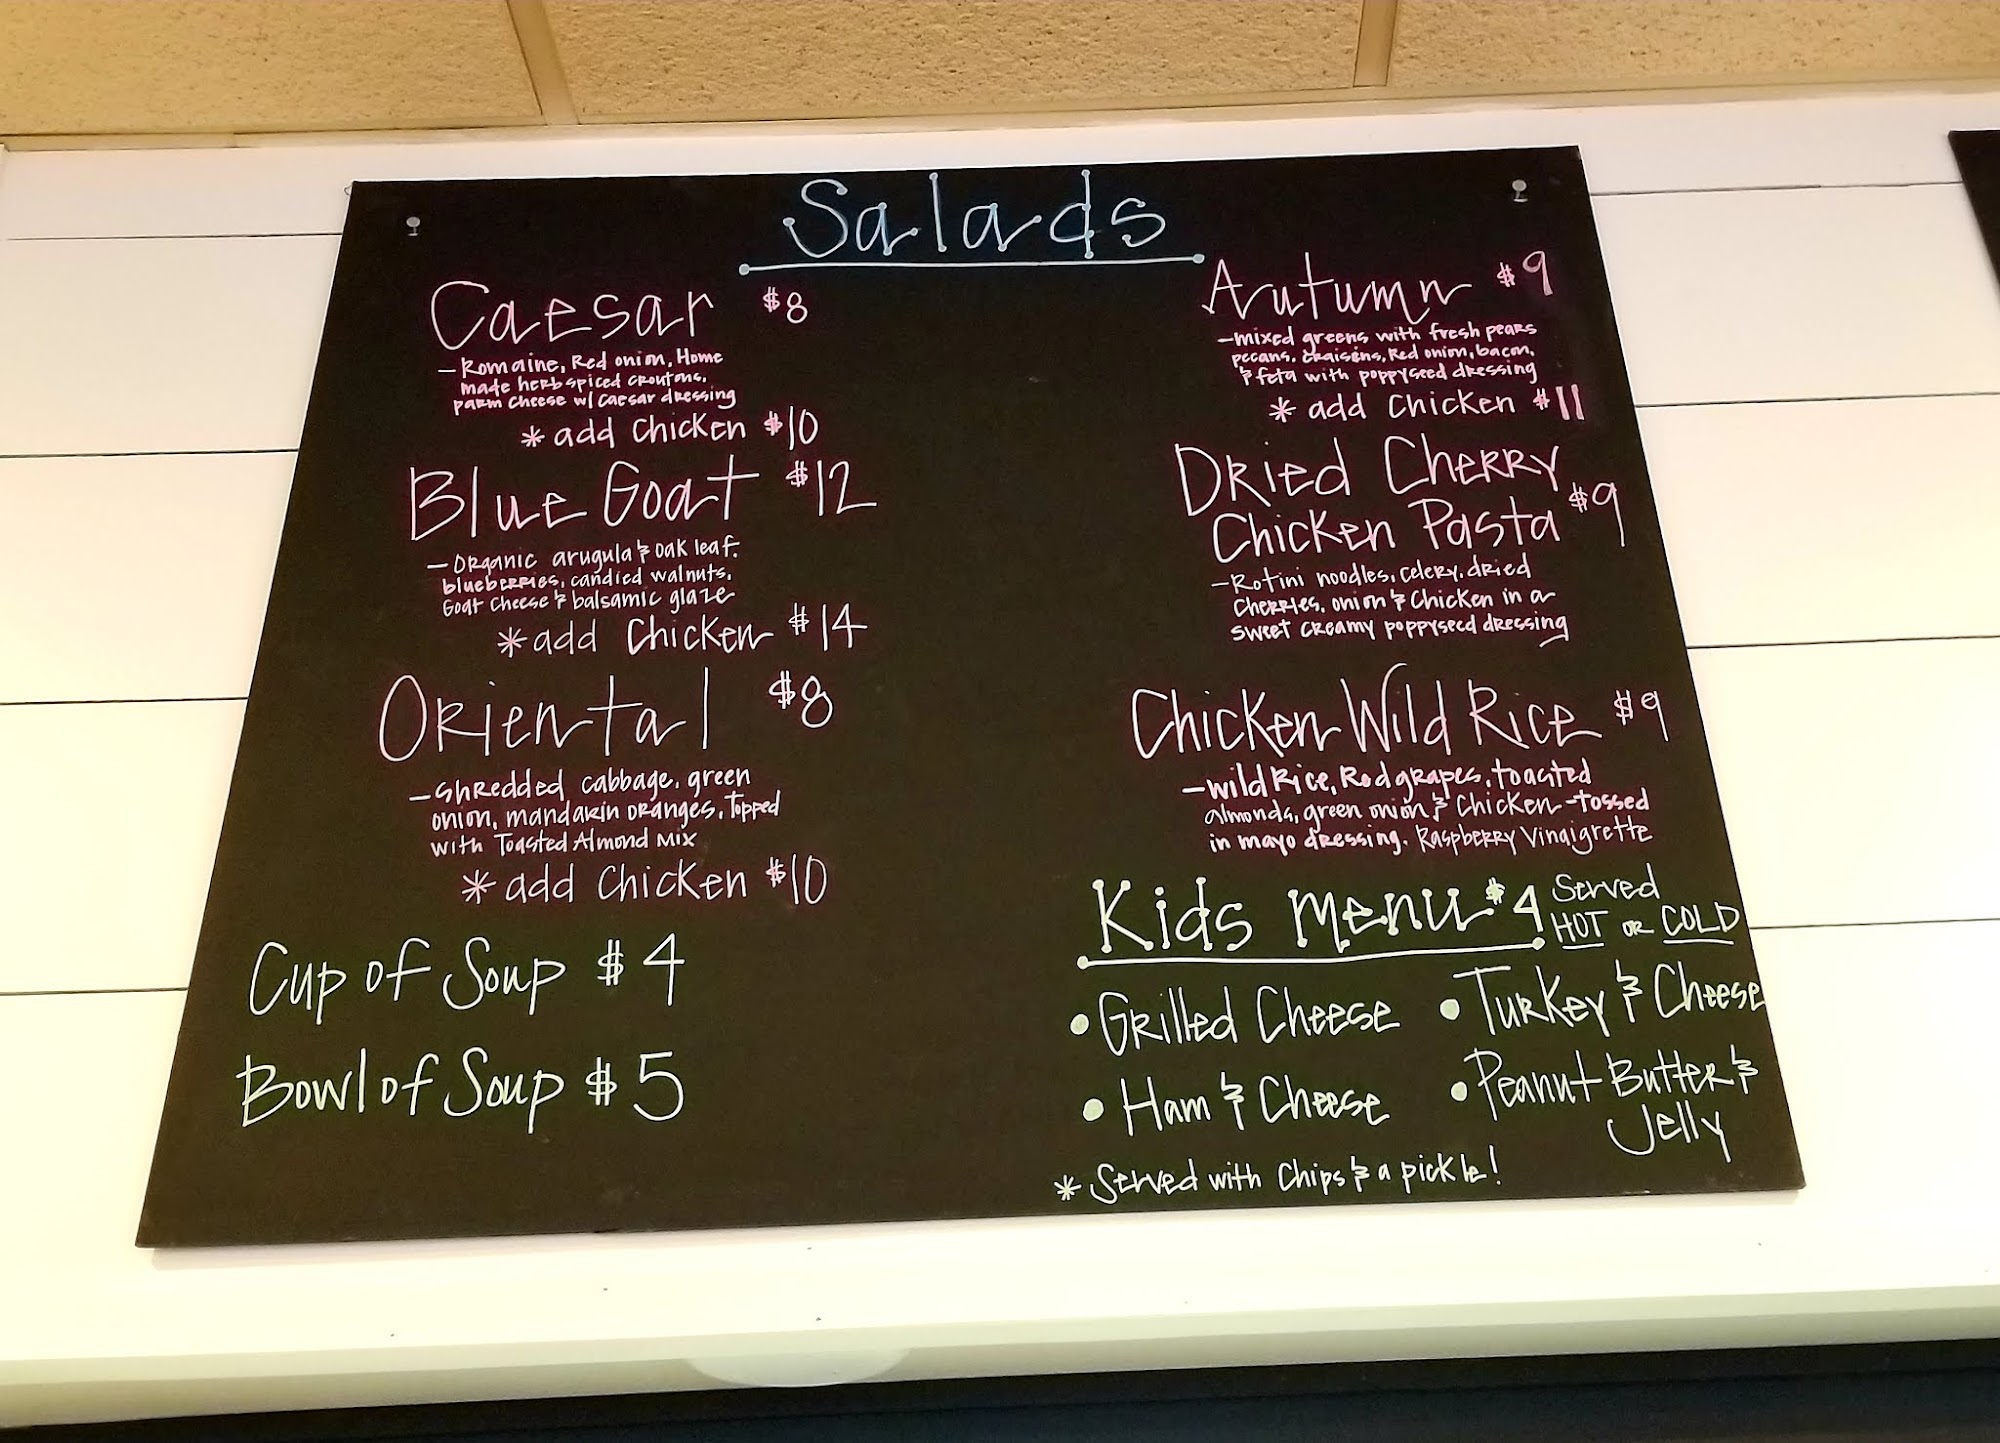 Salads
Caesar $8
- Romaine, Red onion, Home
made herb spiced croutons,
parm cheese w/ caesar dressing
* add Chicken $10
Blue Goat $12
- Organic arugula & oak leaf,
blueberries, candied walnuts,
Goat cheese & balsamic glaze
* add Chicken $14
Oriental $8
- shredded cabbage, green
onion, mandarin oranges, Topped
with Toasted Almond Mix
* add Chicken $10
Cup of Soup $4
Bowl of Soup $5
Autumn $9
- mixed greens with fresh pears
pecans, craisins, Red onion, bacon,
& feta with poppyseed dressing
* add Chicken $11
Dried Cherry
Chicken Pasta $9
- Rotini noodles, celery, dried
cherries, onion & Chicken in a
sweet creamy poppyseed dressing
Chicken Wild Rice $9
- wild Rice, Red grapes, toasted
almonds, green onion & Chicken - tossed
in mayo dressing. Raspberry Vinaigrette
Kids Menu $4 Served
HOT or COLD
• Grilled Cheese
• Turkey & Cheese
• Ham & Cheese
• Peanut Butter &
Jelly
* Served with Chips & a pickle!